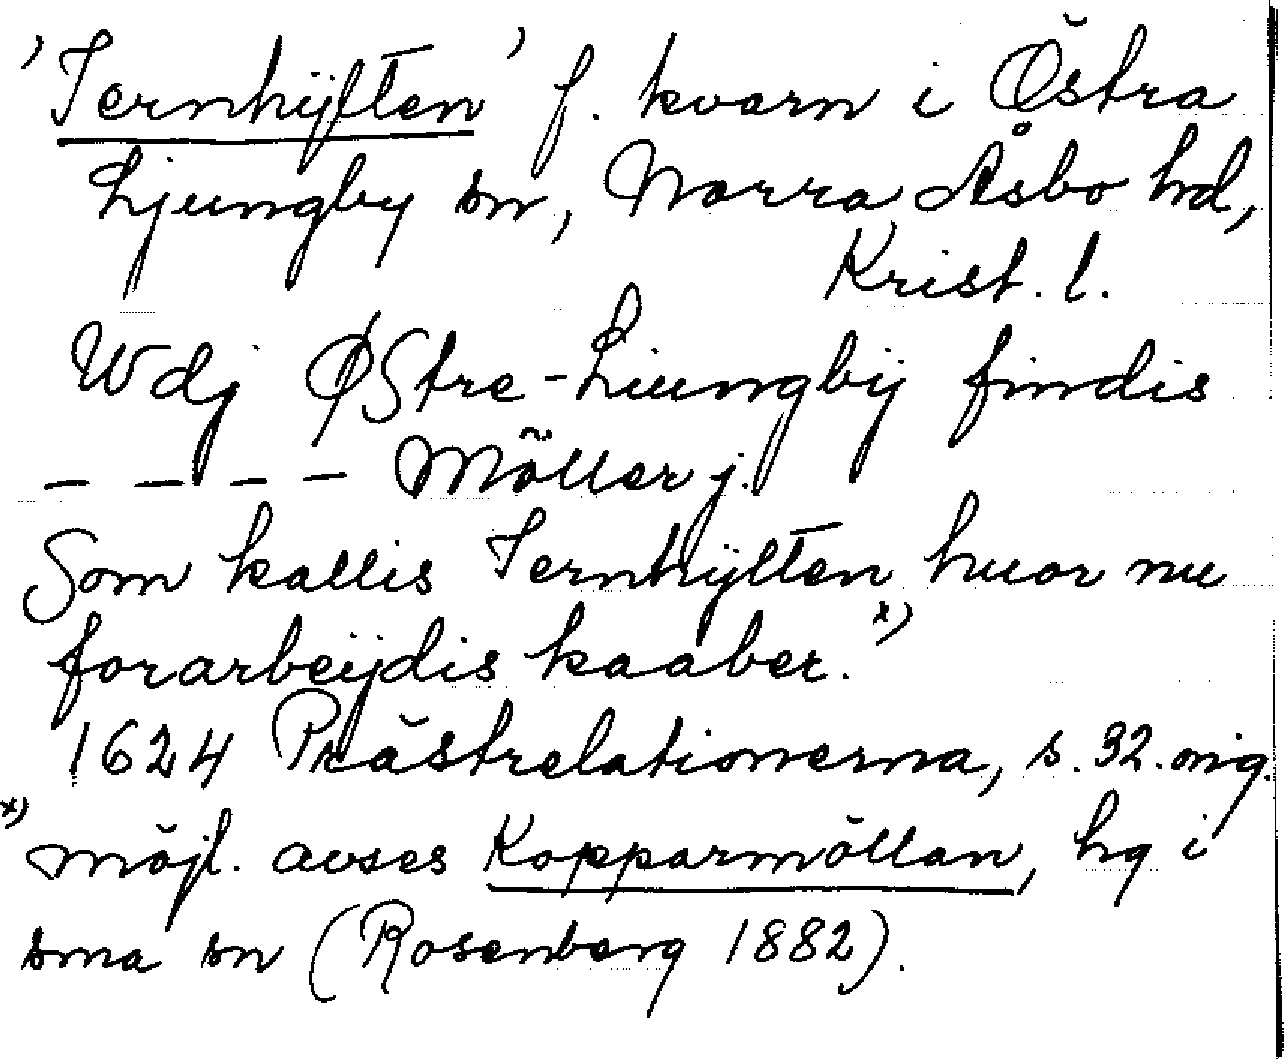 'Jernhÿtten' f. kvarn i Östra
Ljungby sn, Norra Åsbo hd,
Krist. l.
Wdj ØStre-Liungbÿ findis
– – – – Möller j.
Som kallis Jernhÿtten huor nu
forarbeÿdis kaaber.x)
1624 Prästrelationerna, s. 32. orig.
x) möjl. avses Kopparmöllan, hg i
sma sn (Rosenberg 1882).